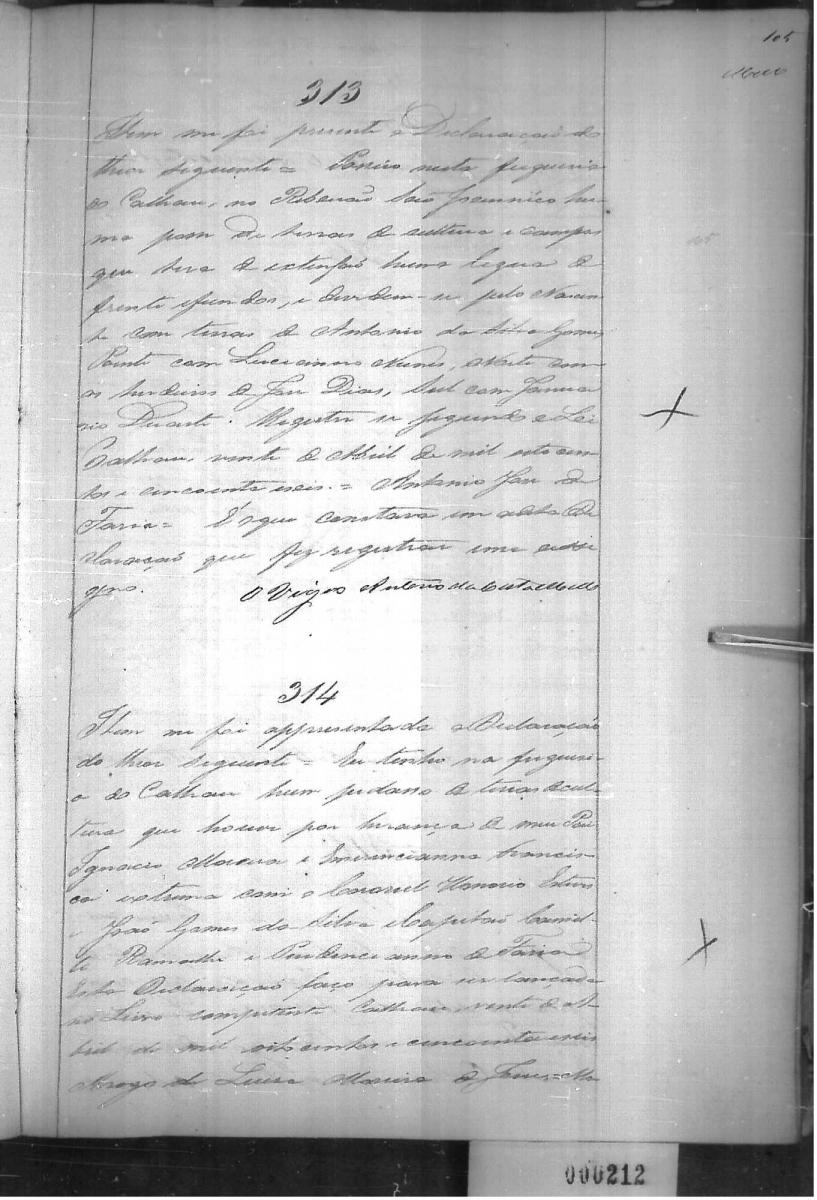 105
Mello
313
Item me foi presente a Declaração do
theor seguinte = Possuo nesta freguesia
do Calhau, no Ribeirão São hu-
ma parte de terras de cultura e campos
que tera de extensão huma legua de
frente e fundos, e devidem-se pelo Nascen
te com terras de Antonio da Silva Gomes
Poente com Lucianno Nunes, Norte com
os herdeiros de José Dias, Sul com Janua
rio Duarte. Registre se segundo a Lei
Calhau, vinte de Abril de mil oito cen-
tos e cincoenta e seis. = Antonio José de
Faria = É o que constava em a dita De
claração que fiz registrar e me assi
gno. O Vigro Antonio da Costa Mello
105
314
Item me foi appresentada a Declaração
do theor seguinte = Eu tenho na freguesi-
a do Calhau hum pedaso de terras de cul-
tura que houve por herança de meu Pai
Ignacio Moreira e Emerencianna Francis-
ca extrema com o Coronel Honorio Esteves
e João Gomes da Silva e Capitão Camil-
lo Ramalho e Prudencianno de Faria
Esta Declaração faço para ser lançada
no Livro competente Calhau vinte de A-
bril de mil oito centos e cincoenta e seis
Arogo de Luisa Moreira de Jesus = Ma
000212